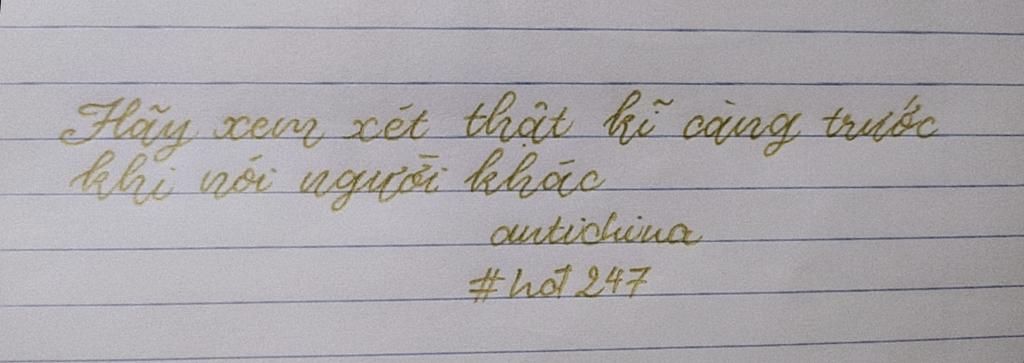 Hãy xem xét thật kĩ càng trước
khi nói người khác
antichina
#hot247